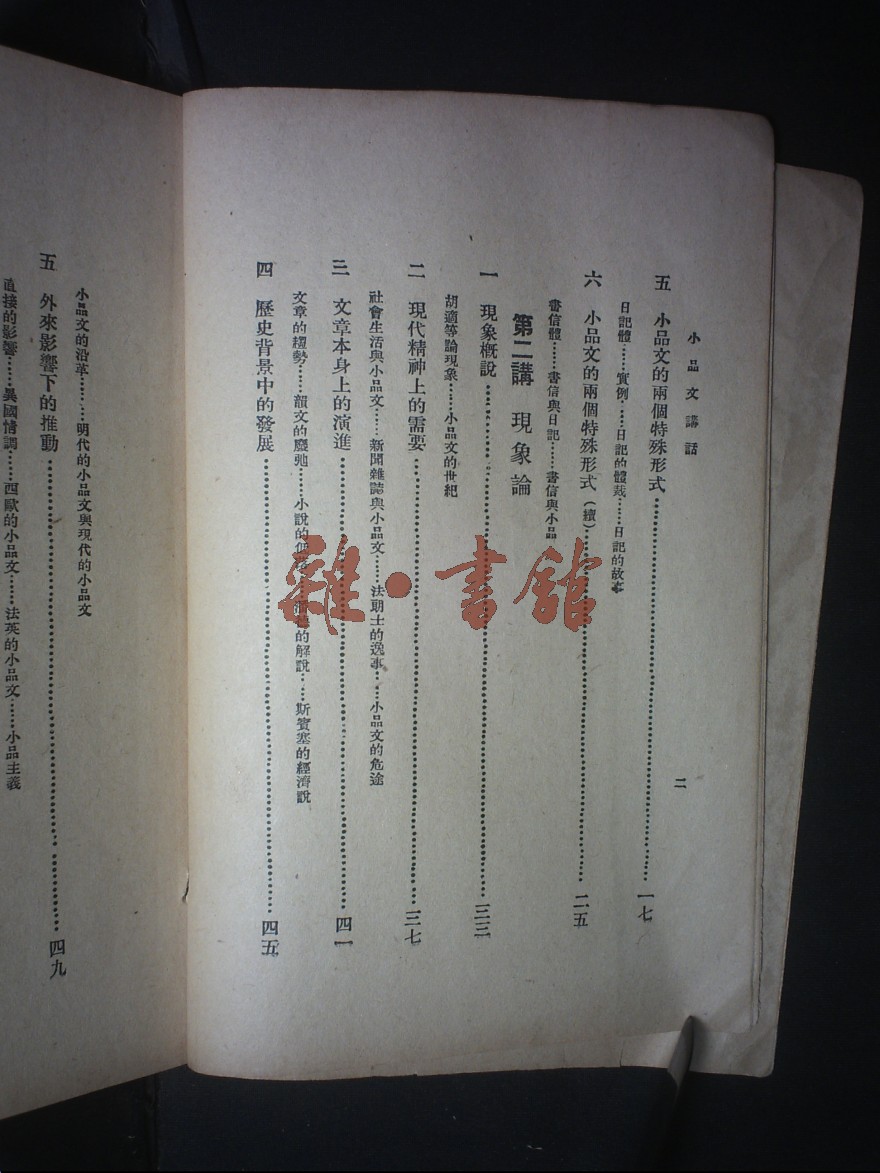 小品文講話
二
五 小品文的兩個特殊形式……一七
日記體……實例……日記的體裁……日記的故事
六 小品文的兩個特殊形式(續)……二五
書信體……書信與日記……書信與小品
第二講 現象論
一 現象概說……三三
胡適等論現象……小品文的世紀
二 現代精神上的需要……三七
社會生活與小品文……新聞雜誌與小品文……法朗士的逸事……小品文的危途
三 文章本身上的演進……四一
文章的趨勢……韻文的廢弛……小說的……的解說……斯賓塞的經濟說
四 歷史背景中的發展……四五
小品文的沿革……明代的小品文與現代的小品文
五 外來影響下的推動……四九
直接的影響……異國情調……西歐的小品文……法英的小品文……小品主義
雜·書館